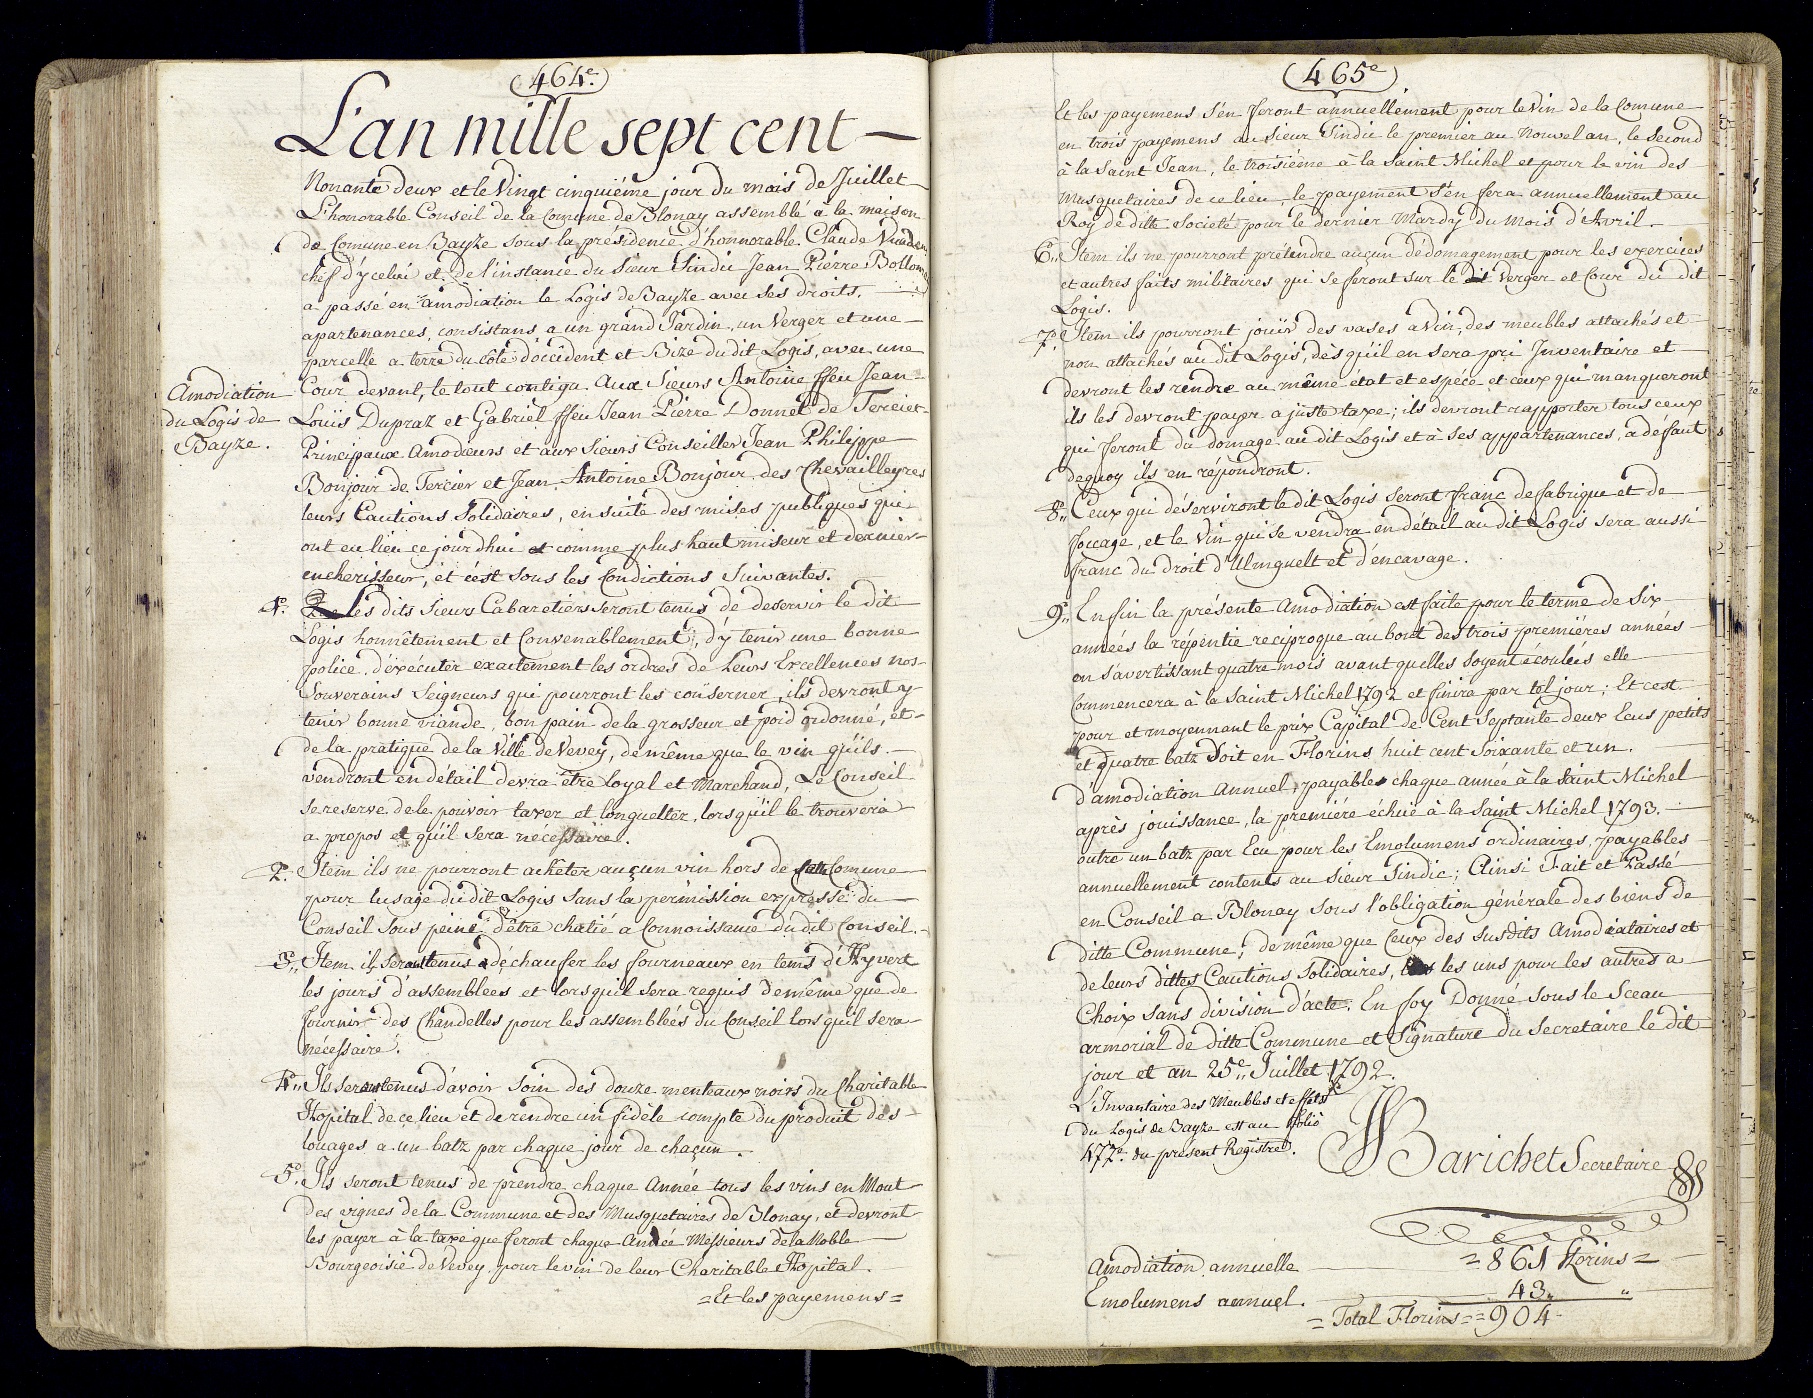 (464e.)
L'an mille sept cent —
Nonante deux et le Vingt cinquiéme jour du mois de Juillet
L'honorable Conseil de la Comune de Blonay assemblé à la maison
de Comune en Bayze sous la présidence d'honnorable Claude
chef d'ycelui et de l'instance du Sieur Sindic Jean Piérre
a passé en amodiation le Logis de Bayze avec ses droits,
apartenances, consistans a un grand Jardin, un Verger et une
parcelle a terre du côté d'occident et Bize du dit Logis, avec une
Cour devant, le tout contigu. Aux Sieurs Antoine ffeu Jean
Louïs Dupraz et Gabriël ffeu Jean Piérre Donnet de Terciet
Principaux Amodieurs et aux Sieurs Conseiller Jean Philippe
Bonjour de Tercier et Jean Antoine Bonjour des Chevailleyres
leurs Cautions Solidaires, en suite des mises publiques qui
ont eu lieu ce jourdhui et comme plus haut miseur et dernier
encherisseur, et c'est sous les Condictions Suivantes.
Amodiation
du Logis de
Bayze.
1o. Les dits Sieurs Cabaretiers seront tenus de deservir le dit
Logis honnêtement et Convenablement, d'y tenir une bonne
police, d'éxécuter exactement les ordres de Leurs Excellences nos
Souverains Seigneurs qui pourront les conserner, ils devront y
tenir bonne viande, bon pain de la grosseur et poid ordonné, et
de la pratique de la Ville de Vevey, de même que le vin qu'ils
vendront en détail devra être loyal et Marchand, Le Conseil
se reserve de le pouvoir taxer et longuelter, lors qu'il le trouvera
a propos et qu'il sera nécessaire.
2o. Item ils ne pourront acheter aucun vin hors de cette Comune
pour lusage du dit Logis sans la pérmission expresse du
Conseil sous peine d'être chatié a Connoissance du dit Conseil.
3o,, Item, ils seront tenus déchaufer les fourneaux en tems d'Hyvert
les jours d'assemblées et lors qu'il sera requis de même que de
fournir des Chandelles pour les assemblées du Conseil lors quil sera
nécessaire.
4o,, Ils seront tenus d'avoir soin des douze menteaux noirs du Charitable
Hopital de ce lieu et de rendre un fidèle compte du produit des
louages a un batz par chaque jour de chaçun.
5o. Ils seront tenus de prendre chaque Année tous les vins en Mout
des vignes de la Commune et des Musquetaires de Blonay, et devront
les payer à la taxe que feront chaque Année Messieurs de la Noble
Bourgeoisie de Vevey, pour le vin de leur Charitable Hopital.
=Et les payemens=
(465e)
Et les payemens s'en feront annuellement pour le Vin de la Comune
en trois payemens au Sieur Sindic le premier au Nouvel an, le Second
à la Saint Jean, le troisiéme à la Saint Michel et pour le vin des
Musquetaires de ce lieu, le payement s'en fera annuellement au
Roy de ditte Societé pour le dernier Mardy du Mois d'Avril.
6o,, Item ils ne pourront prétendre auçun dédomagement pour les exercices
et autres faits militaires qui se feront sur le dit Verger et Cour du dit
Logis.
7o,, Item ils pourront jouïr des vases a Vin, des meubles attachés et
non attachés au dit Logis, dès qu'il en sera pri Inventaire et
devront les rendre au même état et espéce et ceux qui manqueront
ils les devront payer a juste taxe; ils devront rapporter tous ceux
qui feront du domage au dit Logis et à ses appartenances, a défaut
dequoy ils en répondront.
8o,, Ceux qui déserviront le dit Logis seront franc de fabrique et de
foccage, et le Vin qui se vendra en détail au dit Logis sera aussi
franc du droit d'Ulmguelt et d'éncavage.
9o,, Enfin la présente Amodiation est faite pour le terme de Six
années la répentie reciproque au bout des trois premiéres années
en s'avertissant quatre mois avant quelles soyent écoulées elle
Commencera à la Saint Michel 1792 et finira par tel jour; Et cest
pour et moyennant le prix Capital de Cent Septante deux Ecus petits
et quatre batz Soit en Florins huit cent Soixante et un.
d'amodiation Annuel, payables chaque année à la Saint Michel
après jouissance, la premiére échuë à la Saint Michel 1793.
outre un batz par Ecu pour les Emolumens ordinaires, payables
annuellement contents au Sieur Sindic; Ainsi Fait et Passé
en Conseil a Blonay sous l'obligation générale des biens de
ditte Commune; de même que Ceux des susdits Amodiataires et
de leurs dittes Cautions Solidaires, les uns pour les autres a
Choix sans division d'acte. En foy Donné sous le Sceau
armorial de ditte Commune et Signature du Secretaire le dit
jour et an 25e,, Juillet 1792.
L'Invantaire des Meubles et effets
du Logis de Bayze est au folio
477e. du présent Registre.
Barichet Secretaire
Amodiation annuelle =861 Florins=
Emolumens annuel. 43,, ,,
=Total Florins==904